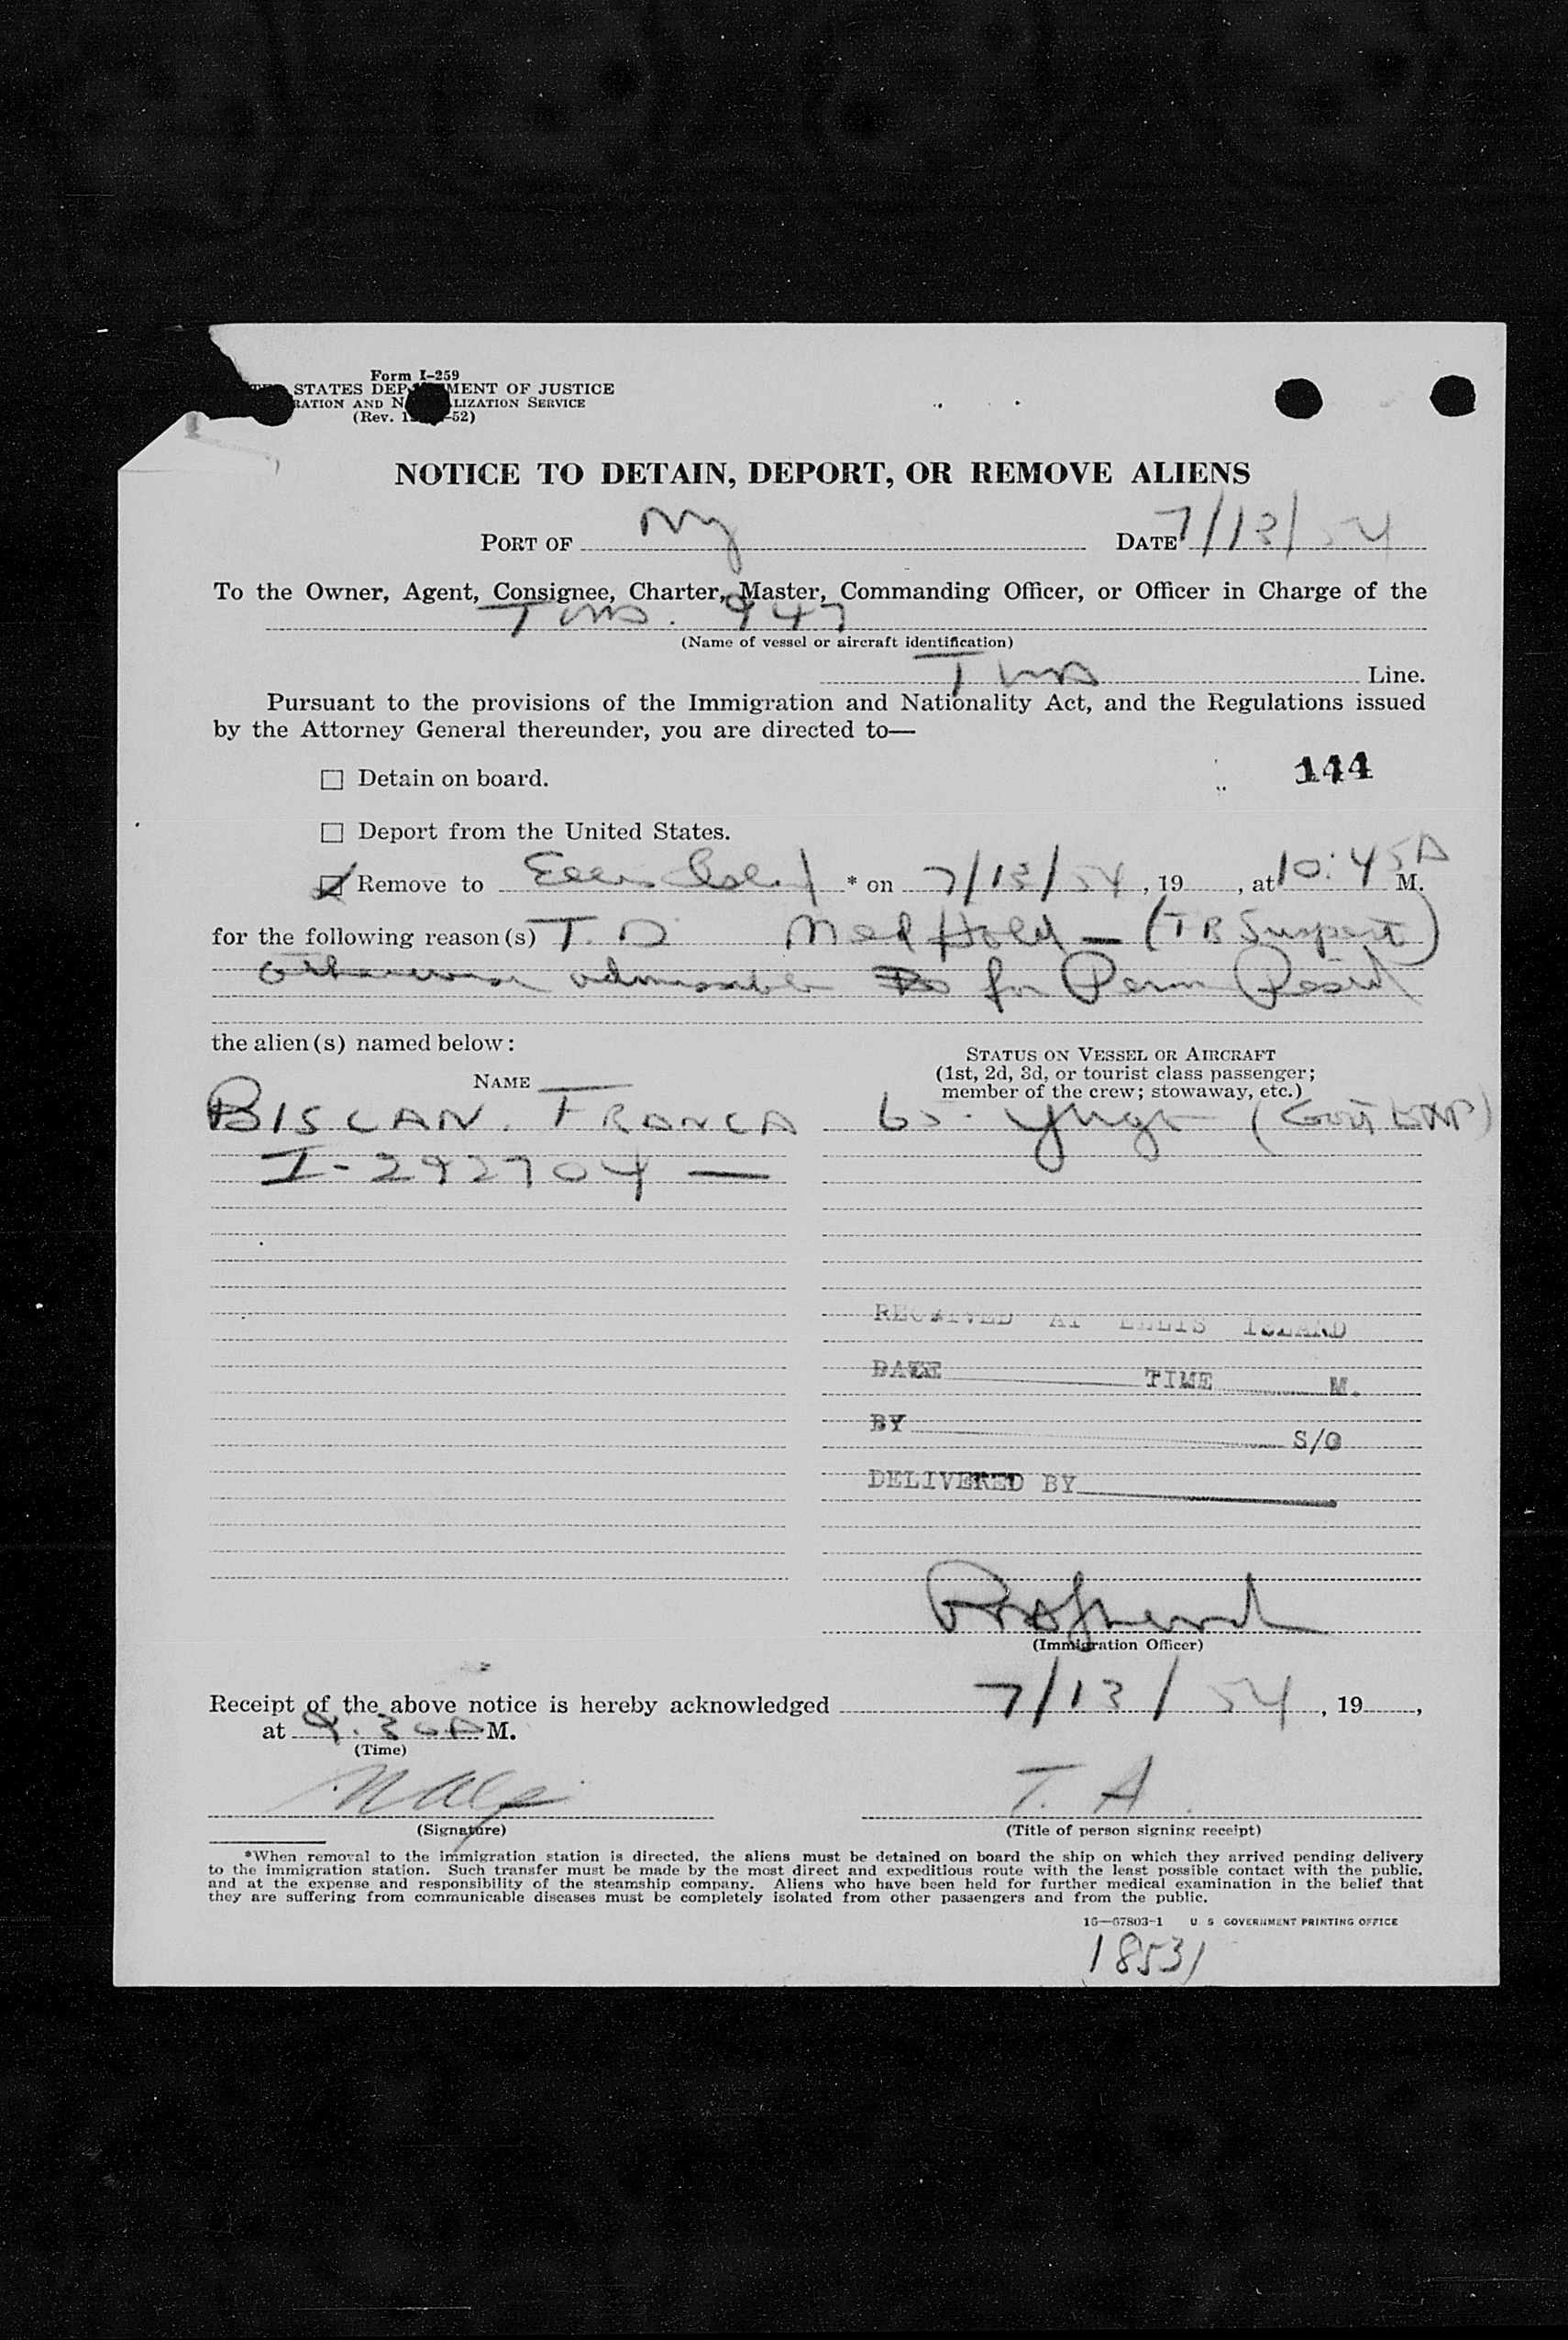 Form I-259
STATES DEP MENT OF JUSTICE
RATION AND N LIZATION SERVICE
(Rev. 1 -52)
NOTICE TO DETAIN, DEPORT, OR REMOVE ALIENS
PORT OF NY DATE 7/13/54
To the Owner, Agent, Consignee, Charter, Master, Commanding Officer, or Officer in Charge of the
947
(Name of vessel or aircraft identification)
Line.
Pursuant to the provisions of the Immigration and Nationality Act, and the Regulations issued
by the Attorney General thereunder, you are directed to—
Detain on board.
144
Deport from the United States.
Remove to Ellis Island * on 7/13/54, 19 , at 10:45A M.
for the following reason(s) T. D. Med Hold — (TB Suspect)
otherwise admissable for Perm Resid
the alien(s) named below:
STATUS ON VESSEL OR AIRCRAFT
(1st, 2d, 3d, or tourist class passenger;
member of the crew; stowaway, etc.)
NAME
BISCAN. FRANCA
I-292704 —
RECEIVED AT ELLIS ISLAND
DATE TIME M.
BY S/O
DELIVERED BY
(Immigration Officer)
Receipt of the above notice is hereby acknowledged 7/13/54, 19 ,
at 9.30A M.
(Time)
T. A.
(Signature) (Title of person signing receipt)
*When removal to the immigration station is directed, the aliens must be detained on board the ship on which they arrived pending delivery
to the immigration station. Such transfer must be made by the most direct and expeditious route with the least possible contact with the public,
and at the expense and responsibility of the steamship company. Aliens who have been held for further medical examination in the belief that
they are suffering from communicable diseases must be completely isolated from other passengers and from the public.
16—67803-1 U. S. GOVERNMENT PRINTING OFFICE
18531